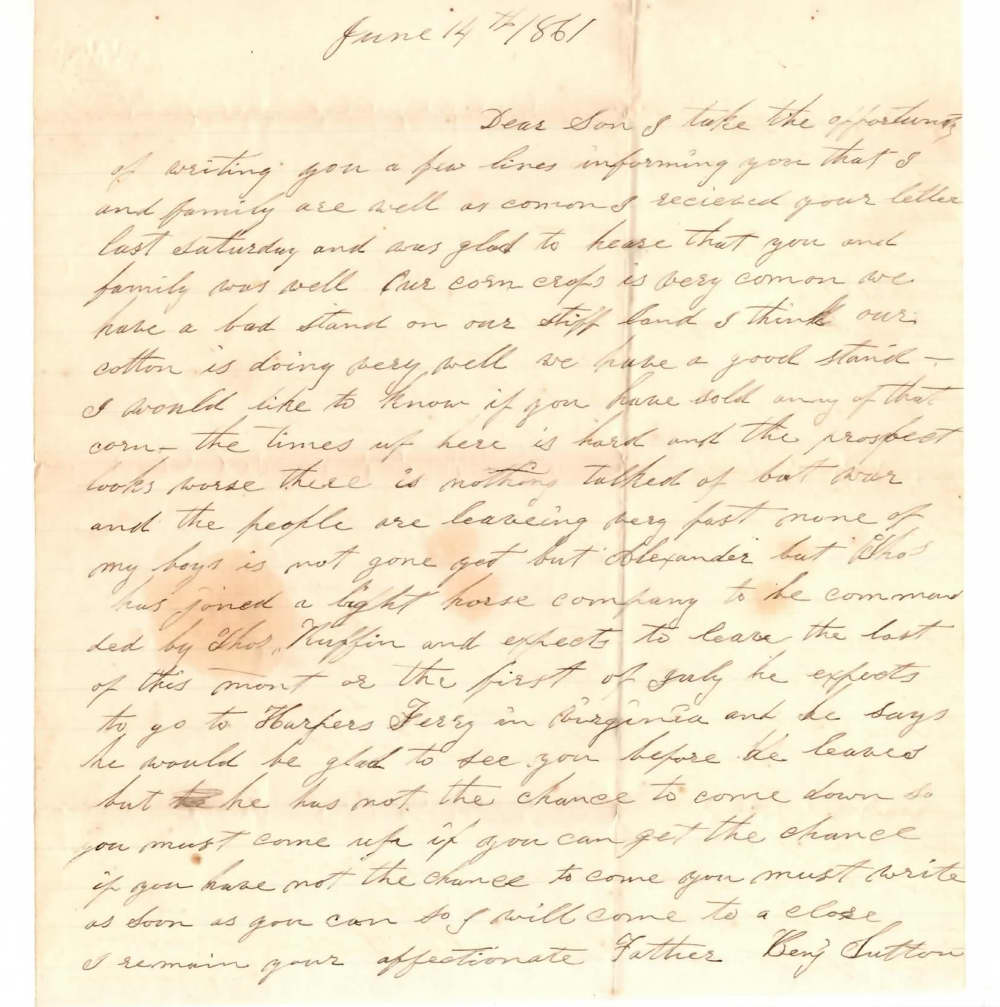 June 14th 1861
Dear Son I take the opportunity
of writing you a few lines informing you that I
and family are well as comon I recieved your letter
last saturday and was glad to heare that you and
family was well Our corn crops is very comon we
have a bad stand on our stiff land I think our
cotton is doing very well we have a good stand -
I would like to know if you have sold anny of that
corn - the times up here is hard and the prospect
looks worse there is nothing talked of but war
and the people are leaveing very fast none of
my boys is not gone yet but Alexander but Thos
has joined a light horse company to be comman
ded by Thos, Ruffin and expects to leave the last
of this mont or the first of July he expects
to go to Harpers Ferry in Virginia and he says
he would be glad to see you before he leaves
but he has not the chance to come down so
you must come up if you can get the chance
if you have not the chance to come you must write
as soon as you can so I will come to a close
I remain your affectionate Father Benj Sutton